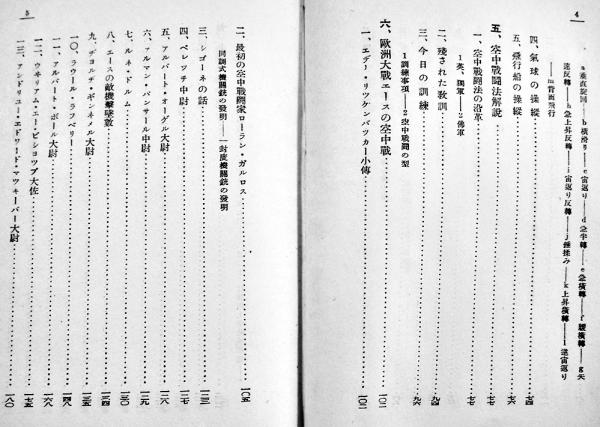 4
a 垂直旋回——b 橫滑り——c 宙返り——d 急半轉——e 急橫轉——f 緩橫轉——g 失
速反轉——h 急上昇反轉——i 宙返り反轉——j 錐揉み——k 上昇橫轉——l 逆宙返り
——m 背面飛行
四、氣球の操縱
五、飛行船の操縱 七六
五、空中戰鬪法解說 七七
一、空中戰鬪法の沿革 七七
1 英、獨軍——2 佛軍
二、殘された敎訓 九四
三、今日の訓練 九六
1 訓練事項——2 空中戰鬪の型
六、歐洲大戰エースの空中戰 一〇一
一、エデー・リツケンバツカー小傳 一〇一
5
二、最初の空中戰鬪家ローラン・ガルロス 一〇五
同調式機關銃の發明——封度機關銃の發明
三、シゴーネの話 一二三
四、ペレツチ中尉 一二七
五、アルバート・オーゲル大尉 一二八
六、アルマン・パンサール中尉 一二九
七、ルネ・ドルム 一三〇
八、エースの敵機擊墜數 一三四
九、ヂヨルヂ・ギンネメル大尉 一三五
一〇、ラウール・ラフベリー 一四八
一一、アルバート・ボール大尉 一六八
一二、ウヰリアム・エー・ビシヨツプ大佐 一七五
一三、アンドリユー・エドワード・マツキーバー大尉 一八〇